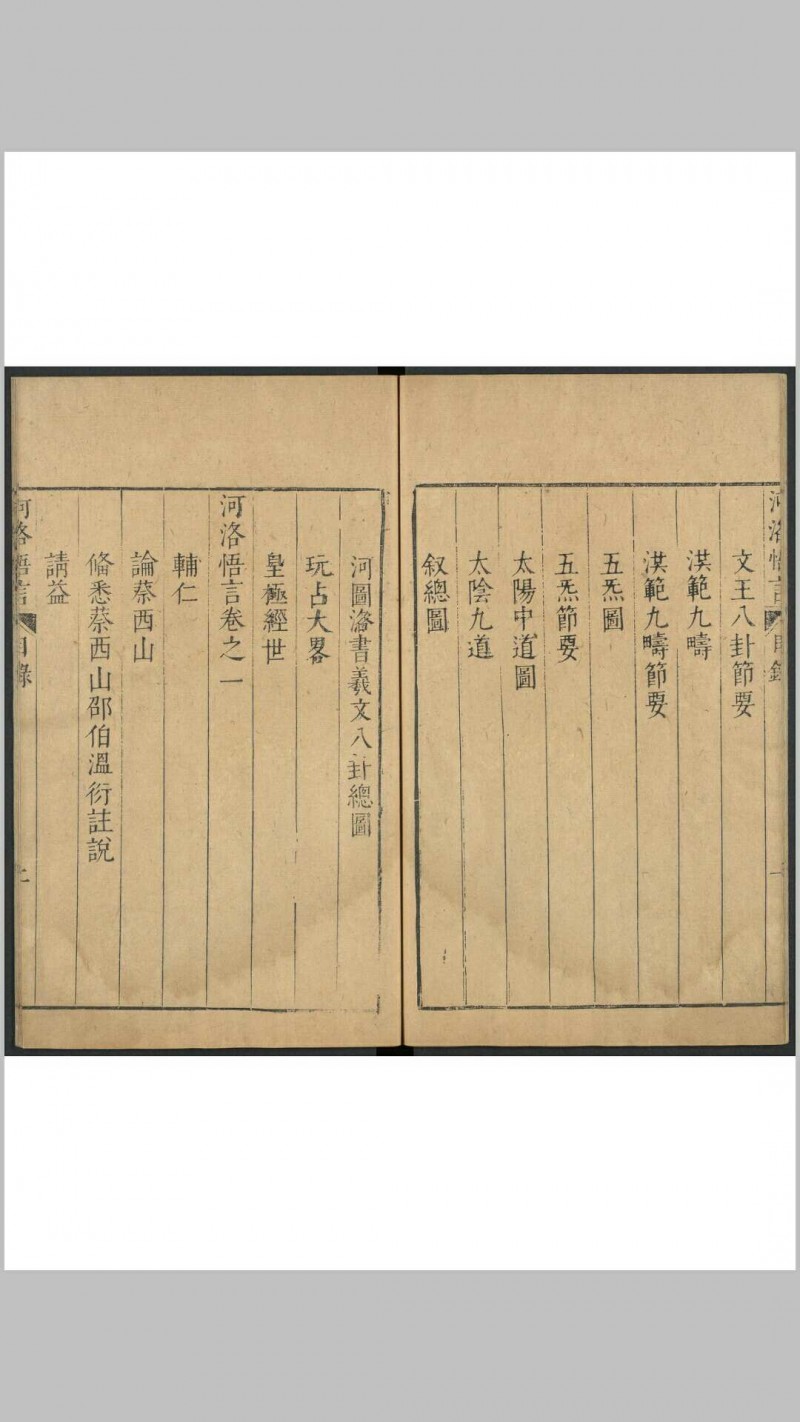 河洛悟言 目錄 一
文王八卦節要
洪範九疇
洪範九疇節要
五炁圖
五炁節要
太陽中道圖
太陰九道
叙總圖
河圖洛書羲文八卦總圖
玩占大畧
皇極經世
河洛悟言卷之一
輔仁
論蔡西山
偹悉蔡西山邵伯溫衍註說
請益
河洛悟言 目錄 二